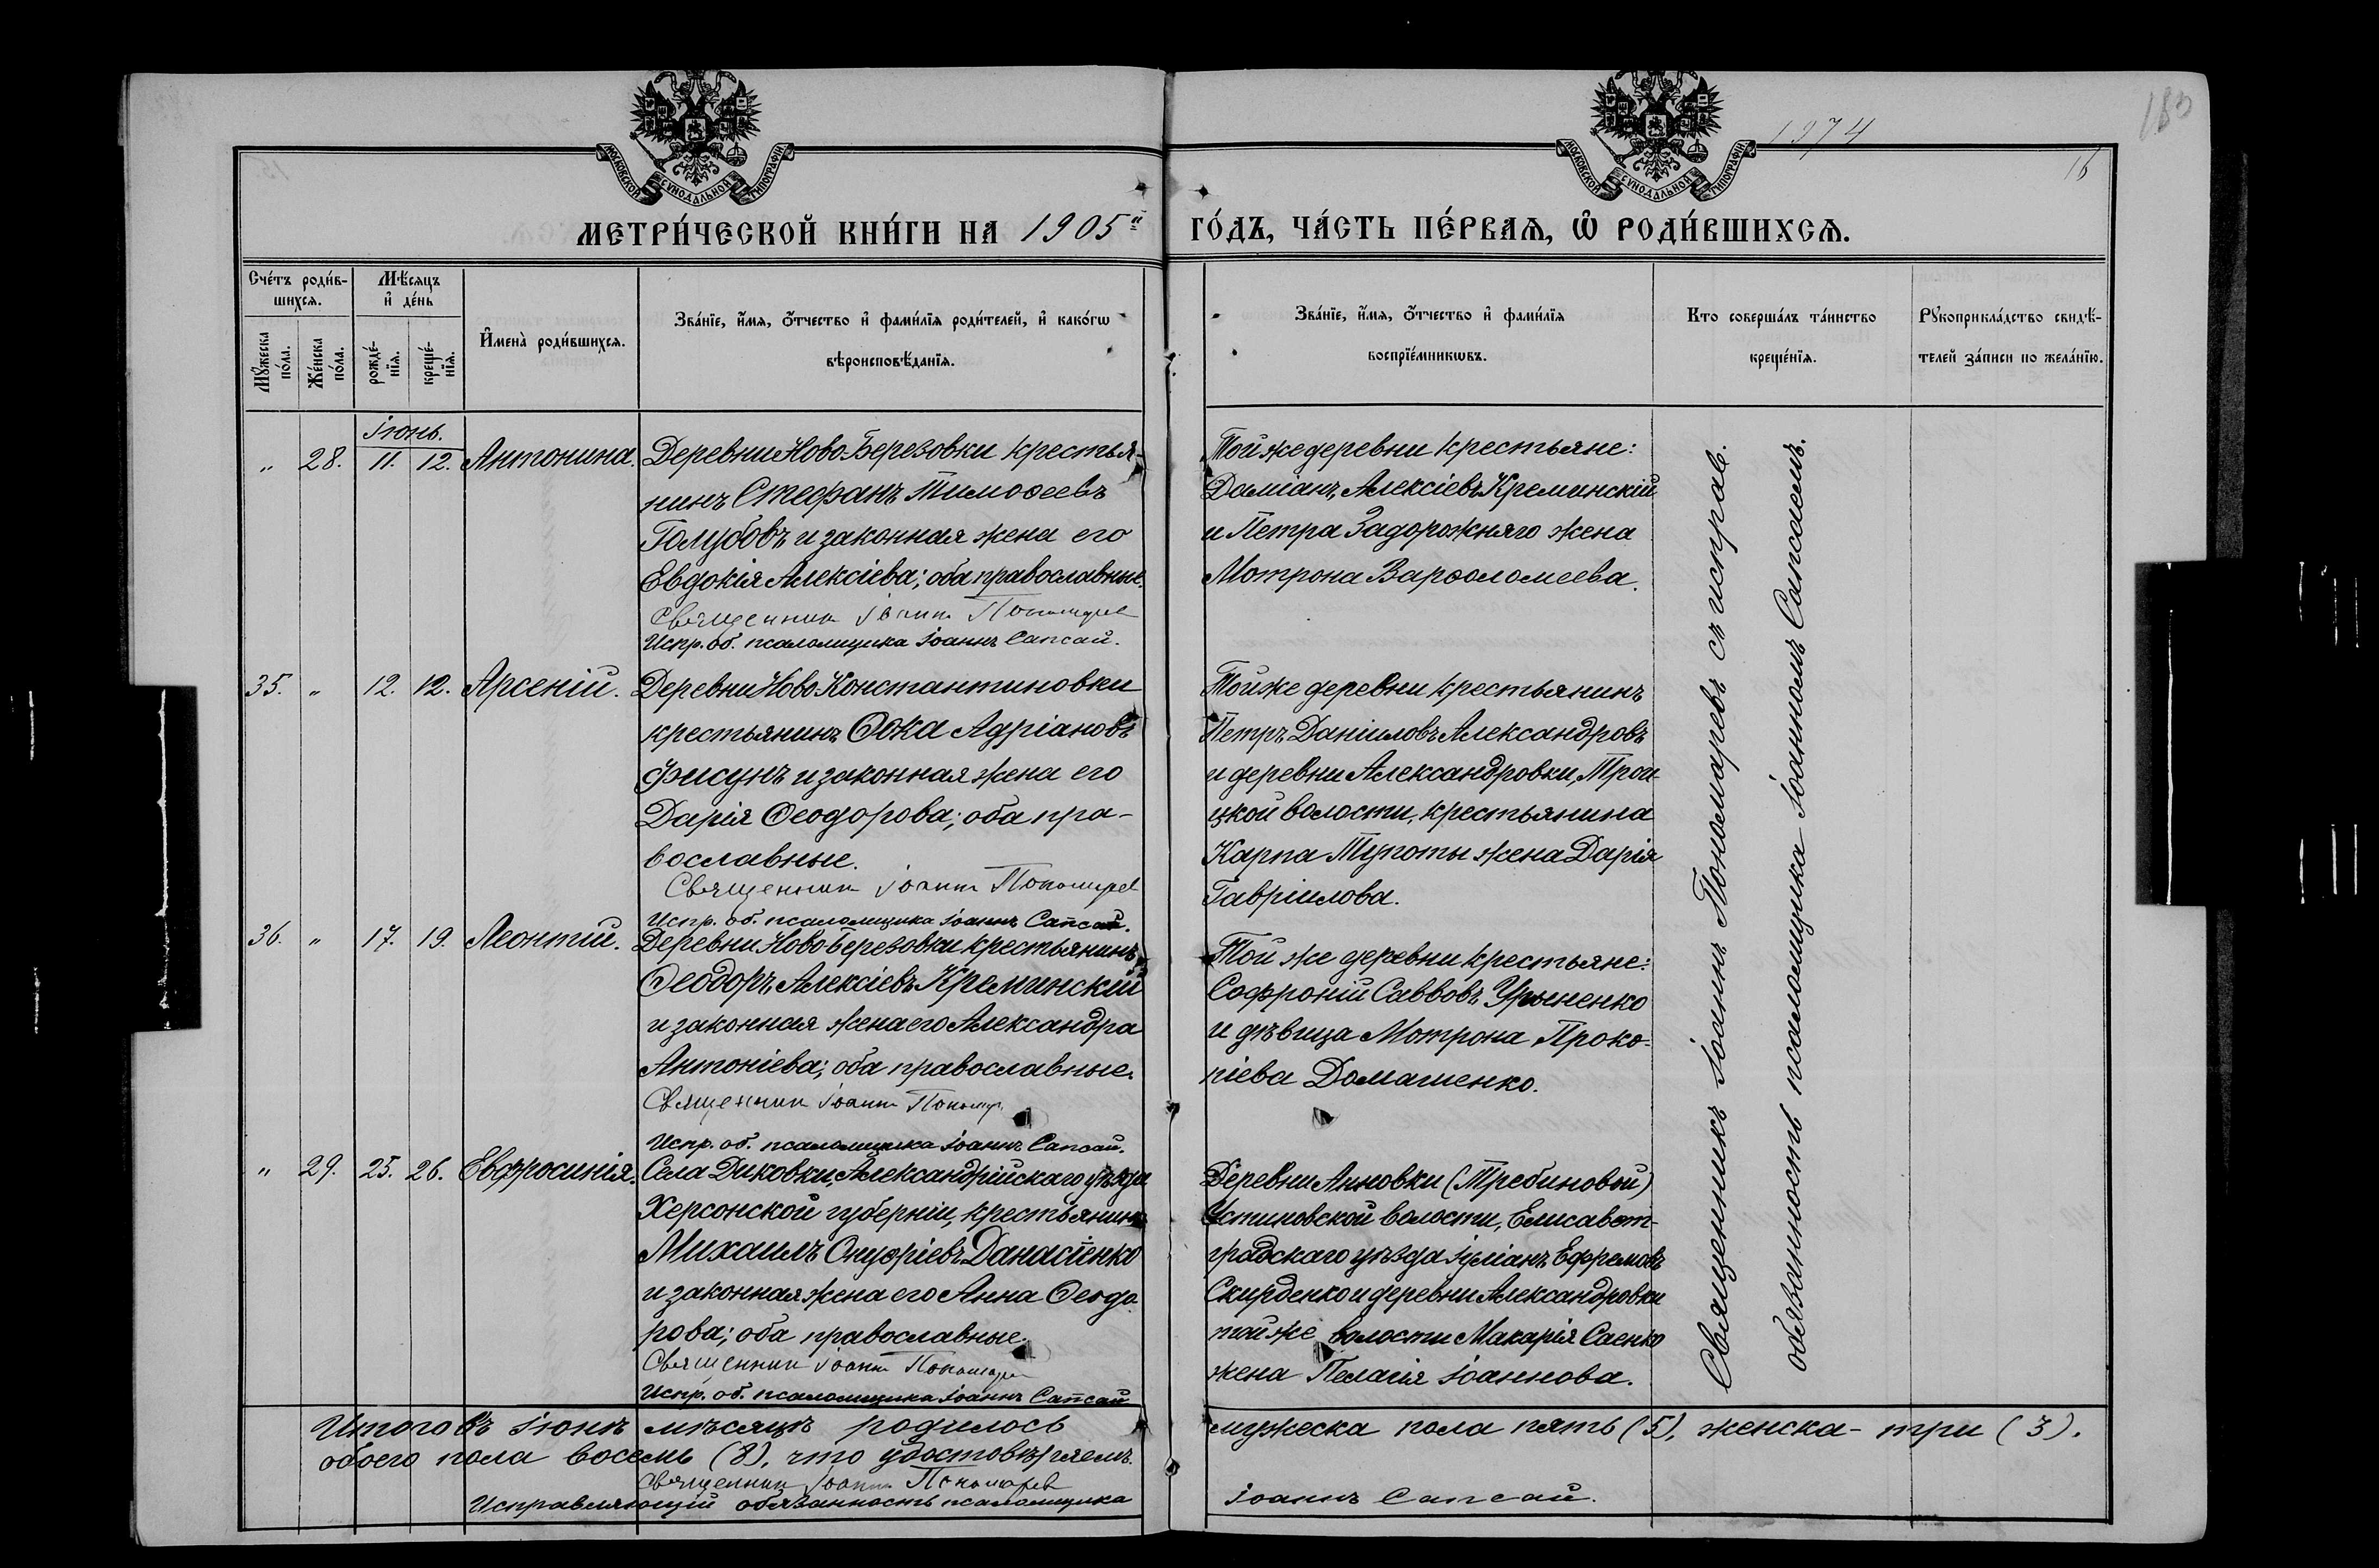 МОСКОВСКОЙ СУНОДАЛЬНОЙ ТИПОГРАФІИ
МОСКОВСКОЙ СУНОДАЛЬНОЙ ТИПОГРАФІИ
1974
16
МЕТРИ́ЧЕСКОЙ КНИ́ГИ НА 1905й ГО́ДЪ, ЧА́СТЬ ПЕ́РВАѦ, Ѡ҆ РОДИ́ВШИХСѦ.
Сче́тъ роди́в-
шихсѧ.
Мꙋжеска
по́ла.
Же́нска
по́ла.
Мѣ́сяцъ
и҆ де́нь
рожде́-
нїѧ.
креще́-
нїѧ.
И҆мена̀ роди́вшихсѧ.
Зва́нїе, и҆́мѧ, ѻ҆́тчество и҆ фами́лїѧ роди́телей, и҆ како́гѡ
вѣроисповѣ́данїѧ.
Зва́нїе, и҆́мѧ, ѻ҆́тчество и҆ фами́лїѧ
воспрїе́мникѡвъ.
Кто соверша́лъ та́инство
креще́нїѧ.
Рꙋкоприкла́дство свидѣ́-
телей за́писи по жела́нїю.
Іюнь.
" 28. 11. 12. Антонина. Деревни Ново-Березовки крестья-
нинъ Стефанъ Тимоѳеевъ
Голубовъ и законная жена его
Евдокія Алексіева; оба православные.
Священник Іоанн Пономарев
Испр. об. псаломщика Іоаннъ Сапсай.
Той же деревни крестьяне:
Даміанъ Алексіевъ Креминскій
и Петра Задорожняго жена
Мотрона Варѳоломеева.
35. " 12. 12. Арсеній. Деревни Ново Константиновки
крестьянинъ Ѳока Адріановъ
Фисунъ и законная жена его
Дарія Ѳеодорова; оба пра-
вославные.
Священник Іоанн Пономарев
Испр. об. псаломщика Іоаннъ Сапсай.
Той же деревни крестьянинъ
Петръ Даніиловъ Александровъ
и деревни Александровки, Трои-
цкой волости, крестьянина
Карпа Тупоты жена Дарія
Гавріилова.
36. " 17. 19. Леонтій. Деревни Ново Березовки крестьянинъ
Ѳеодоръ Алексіевъ Креминскій
и законная жена его Александра
Антоніева; оба православные.
Священник Іоанн Пономар.
Испр. об. псаломщика Іоаннъ Сапсай.
Той же деревни крестьяне:
Софроній Саввовъ
и дѣвица Мотрона Проко-
піева Домашенко.
" 29. 25. 26. Евфросинія. Села Диковки, Александрійскаго уѣзда
Херсонской губерніи, крестьянинъ
Михаилъ Онуфріевъ Данасіенко
и законная жена его Анна Ѳеодо
рова; оба православные.
Священник Іоанн Пономарев
Испр. об. псаломщика Іоаннъ Сапсай
Деревни Анновки (Требиновой)
Устиновской волости, Елисавет-
градскаго уѣзда Іуліанъ Ефремовъ
Скирденко и деревни Александровки
той же волости Макарія Саенко
жена Пелагія Іоаннова.
Священникъ Іоаннъ Пономаревъ съ исправ.
обязанность псаломщика Іоанномъ Сапсаемъ.
Итого въ Іюнѣ мѣсяцѣ родилось мужеска пола пять (5), женска - три (3).
обоего пола восемь (8), что удостовѣряемъ.
Священник Іоанн Пономарев
Исправляющій обязанность псаломщика Іоаннъ Сапсай.